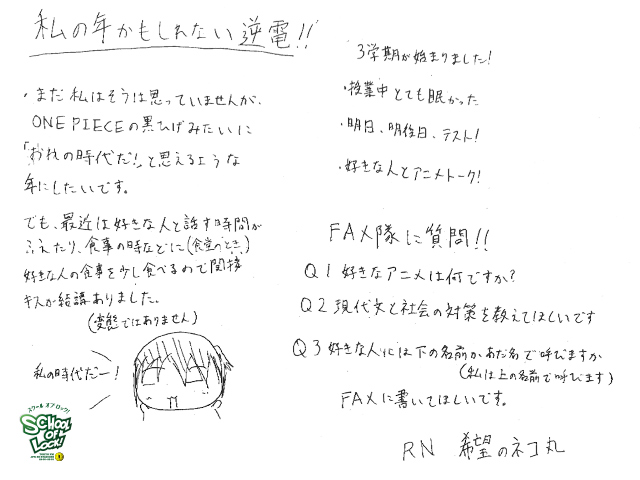 私の年かもしれない逆電!!
・まだ私はそうは思っていませんが、
ONE PIECEの黒ひげみたいに
「おれの時代だ!」と思えるような
年にしたいです。
でも、最近は好きな人と話す時間が
ふえたり、食事の時などに(食堂のとき)
好きな人の食事を少し食べるので間接
キスが結構ありました。
(変態ではありません)
私の時代だー!
スクール オブ ロック!
SCHOOL OF LOCK!
3学期が始まりました!
・授業中とても眠かった
・明日、明後日、テスト!
・好きな人とアニメトーク!
FAX隊に質問!!
Q1 好きなアニメは何ですか?
Q2 現代文と社会の対策を教えてほしいです
Q3 好きな人には下の名前かあだ名で呼びますか
(私は上の名前で呼びます)
FAXに書いてほしいです。
RN 希望のネコ丸